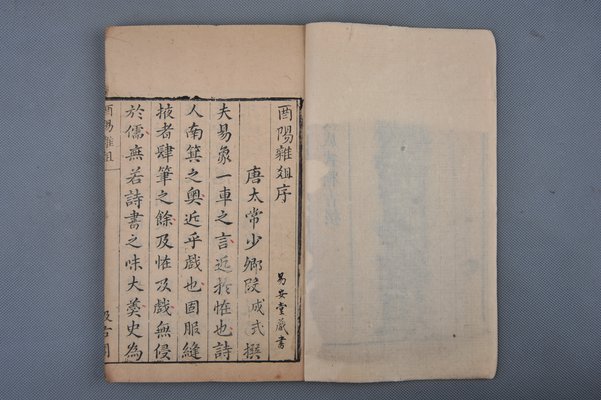 酉陽雜俎序
易安堂藏書
唐太常少卿段成式撰
夫易象一車之言近扵恠也詩
人南箕之奧近乎戲也固服縫
掖者肆筆之餘及恠及戲無侵
於儒無若詩書之味大羹史為
酉陽雜俎